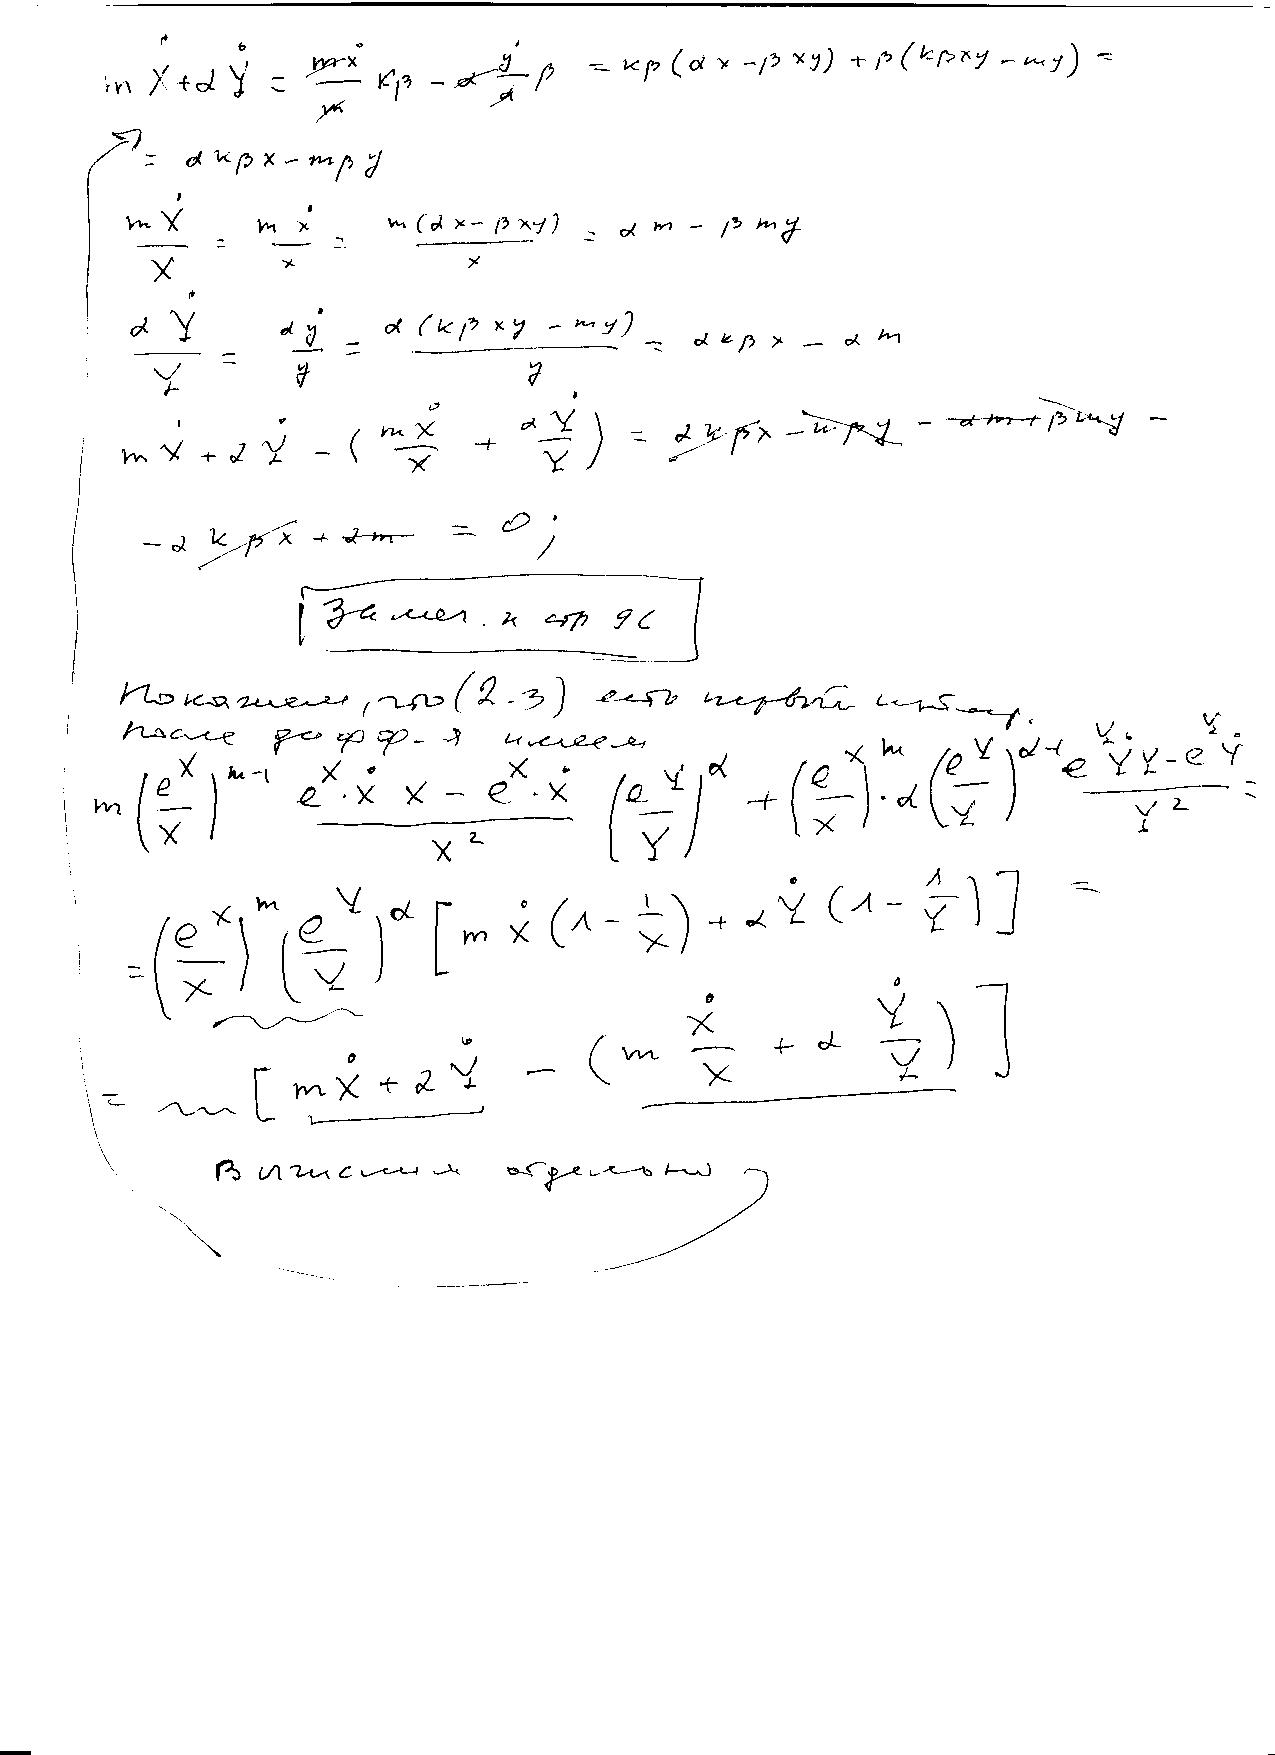 m Ẋ + α Ẏ = mẋ/m kβ - α ẏ/α β = kβ(αx - βxy) + β(kβxy - my) =
= αkβx - mβy
mẊ/X = mẋ/x = m(αx - βxy)/x = αm - βmy
αẎ/Y = αẏ/y = α(kβxy - my)/y = αkβx - αm
mẊ + αẎ - (mẊ/X + αẎ/Y) = αkβx - mβy - αm + βmy -
- αkβx + αm = 0;
Замеч. к стр 96
Покажем, что (2.3) есть первый интегр.
После дифф-я имеем
m(e^X/X)^(m-1) (e^X·Ẋ X - e^X·Ẋ)/X² (e^Y/Y)^α + (e^X/X)^m · α(e^Y/Y)^(α-1) (e^Y ẎY - e^Y Ẏ)/Y² =
= (e^X/X)^m (e^Y/Y)^α [mẊ(1 - 1/X) + αẎ(1 - 1/Y)] =
= [mẊ + αẎ - (m Ẋ/X + α Ẏ/Y)]
Вычислим отдельно